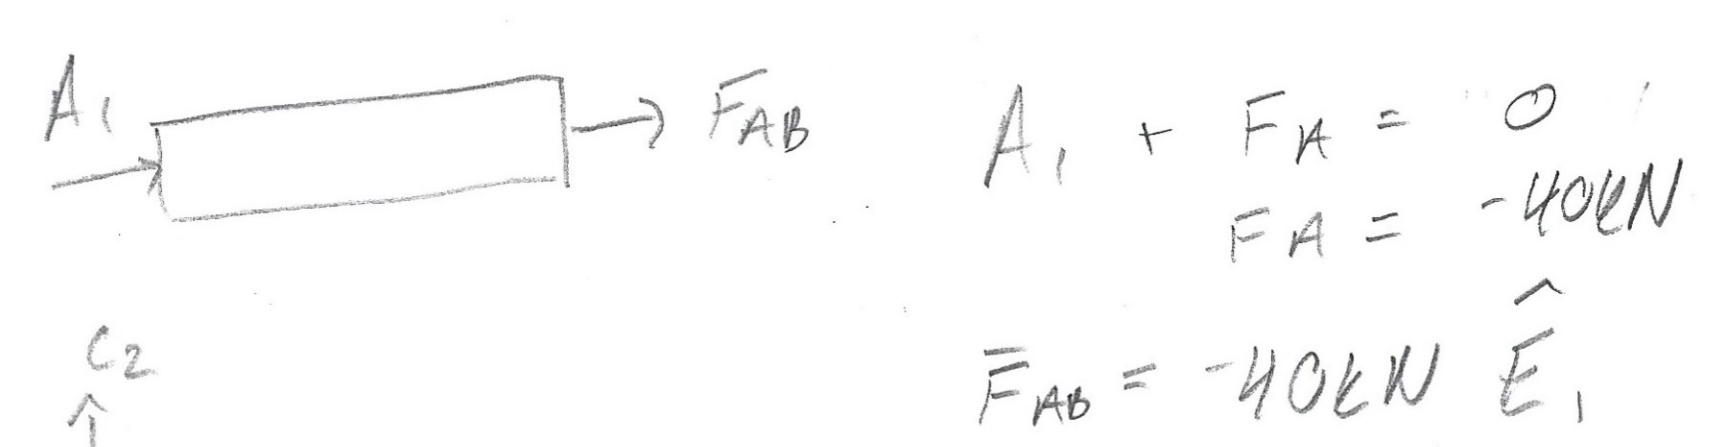 A₁
F̅AB
A₁ + FA = 0
FA = -40kN
C₂
F̅AB = -40kN Ê₁